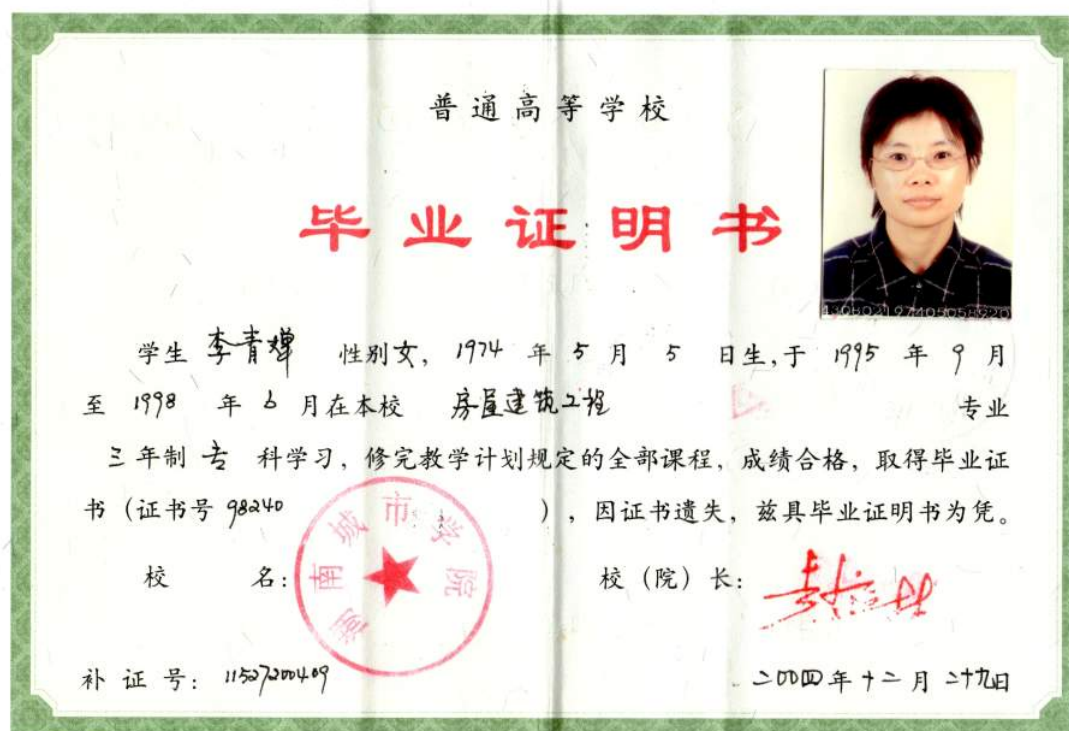 普通高等学校
毕业证明书
学生 李青婵 性别女, 1974 年 5 月 5 日生,于 1995 年 9 月
至 1998 年 6 月在本校 房屋建筑工程 专业
三年制 专 科学习，修完教学计划规定的全部课程，成绩合格，取得毕业证
书（证书号 98240 ），因证书遗失，兹具毕业证明书为凭。
校 名： 校（院）长：
湖南城市学院
补 证 号： 11527200409 二00四年十二月二十九日